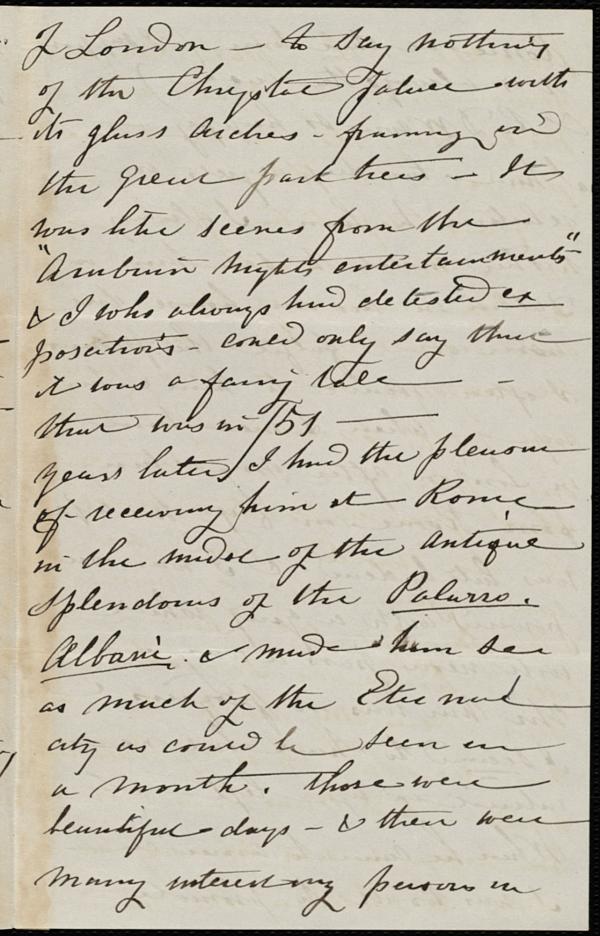 of London – to say nothing
of the Chrystal Palace with
its glass arches – framing in
the great park trees – It
was like scenes from the
"Arabian Nights entertainments"
& I who always had detested ex
positions – could only say that
it was a fairy tale –
that was in /51 –
years later, I had the pleasure
of receiving him at Rome
in the midst of the antique
splendours of the Palazzo.
Albani. & made him see
as much of the Eternal
city as could be seen in
a month. those were
beautiful days – & there were
many interesting persons in